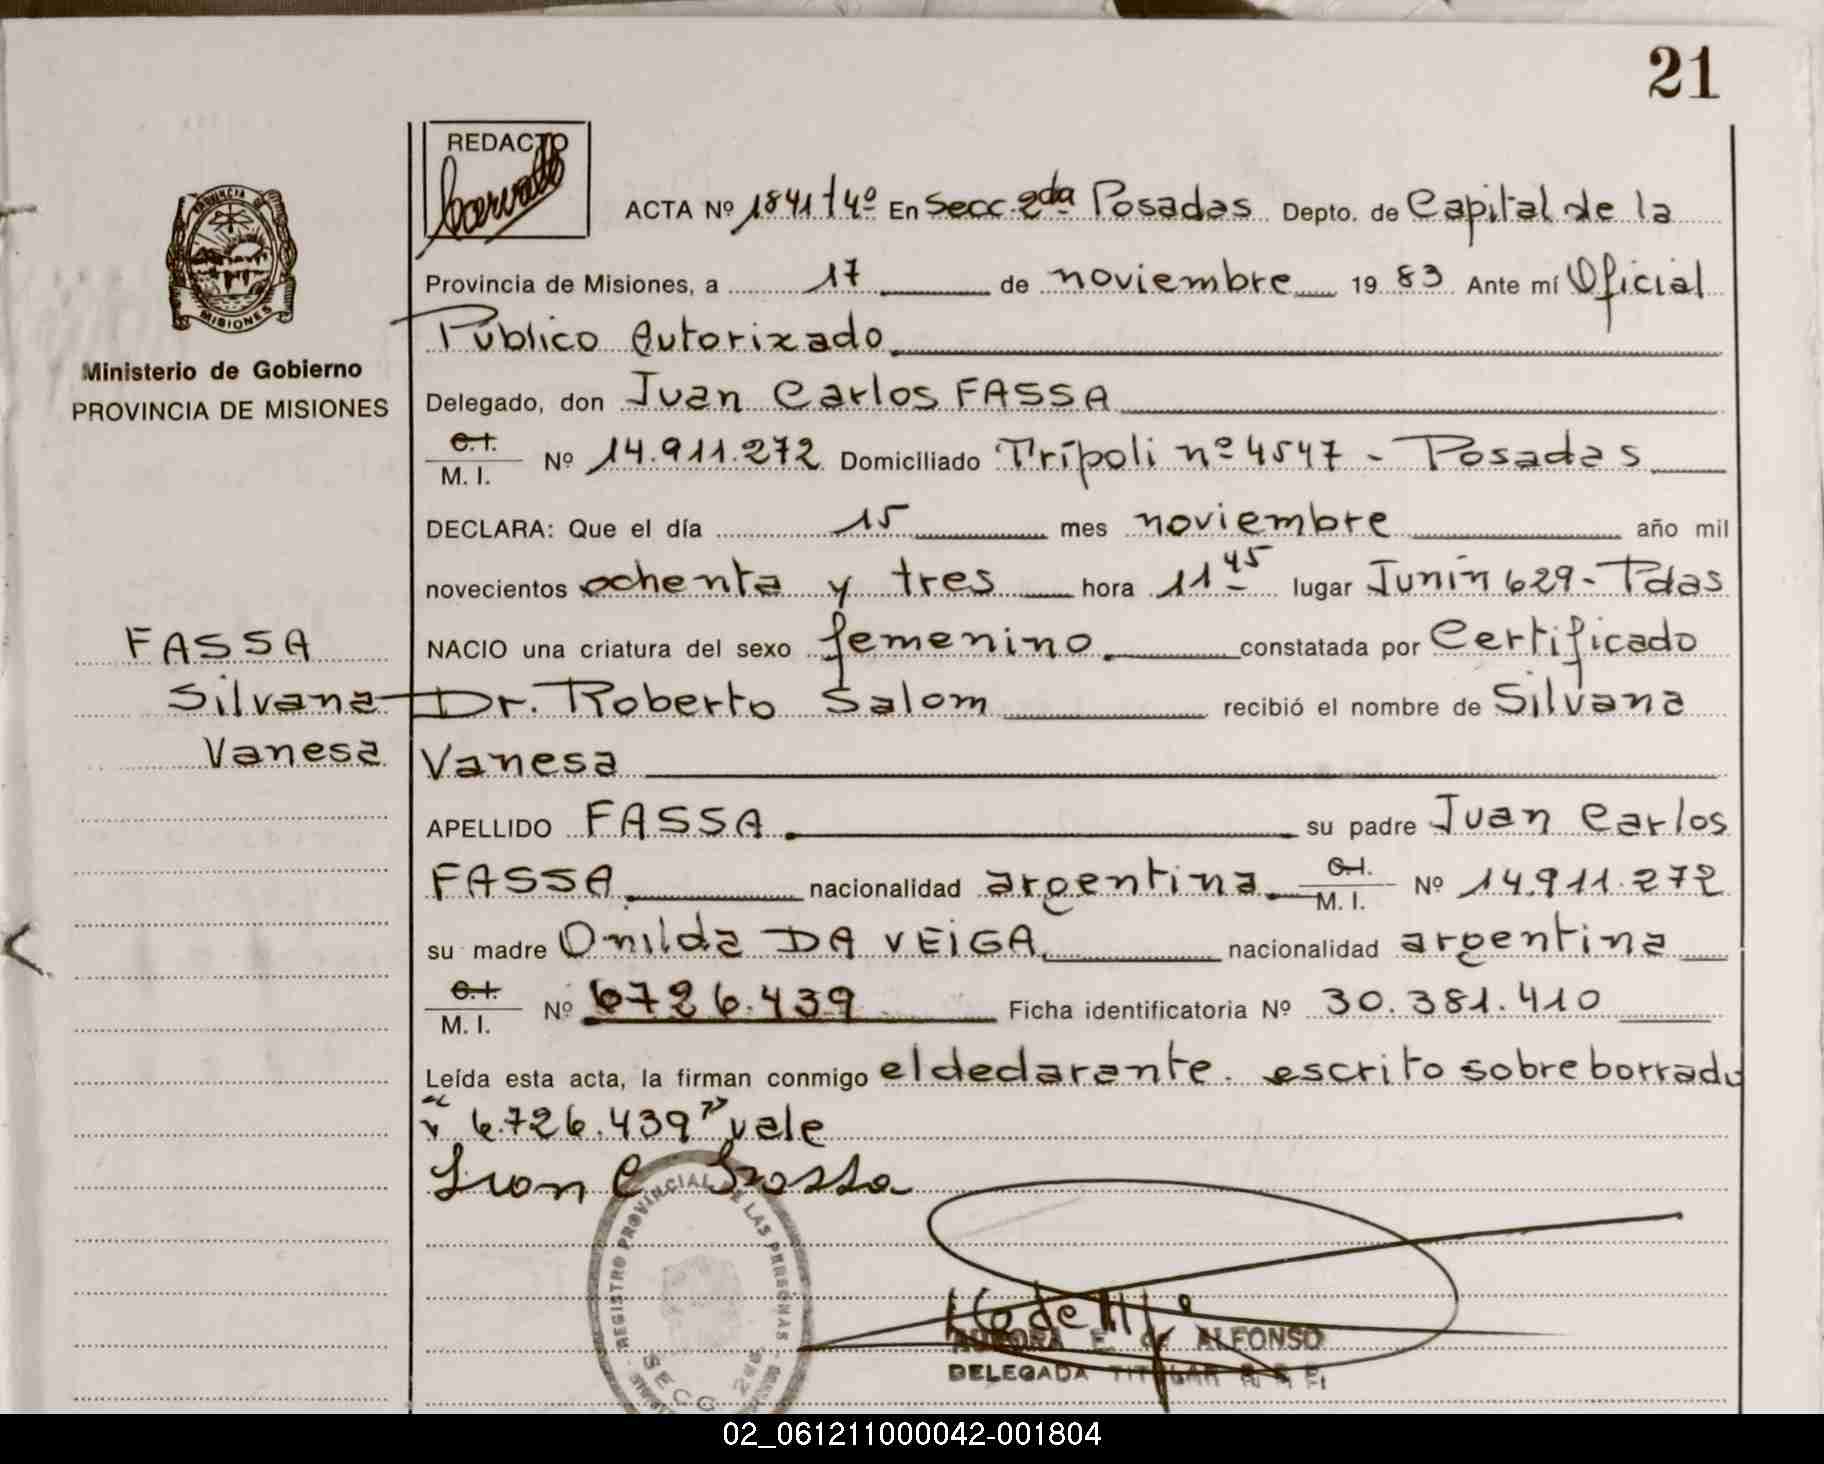 21
REDACTO
ACTA Nº 1841 t 4º En Secc. 2da Posadas Depto. de Capital de la
Provincia de Misiones, a 17 de noviembre 1983 Ante mí Oficial
Público Autorizado
Delegado, don Juan Carlos FASSA
C.I.
M. I. Nº 14.911.272 Domiciliado Trípoli nº 4547 - Posadas
DECLARA: Que el día 15 mes noviembre año mil
novecientos ochenta y tres hora 11 45 lugar Junín 629 - Pdas
NACIO una criatura del sexo femenino constatada por Certificado
Dr. Roberto Salom recibió el nombre de Silvana
Vanesa
APELLIDO FASSA su padre Juan Carlos
FASSA nacionalidad argentina C.I. M. I. Nº 14.911.272
su madre Onilda DA VEIGA nacionalidad argentina
C.I.
M. I. Nº 6726.439 Ficha identificatoria Nº 30.381.410
Leída esta acta, la firman conmigo el declarante. escrito sobre borrado
"6.726.439" vale
Juan C Fassa
PROVINCIA DE
MISIONES
Ministerio de Gobierno
PROVINCIA DE MISIONES
FASSA
Silvana
Vanesa
REGISTRO PROVINCIAL DE LAS PERSONAS
SECC 2da
AURORA E. de ALFONSO
DELEGADA TITULAR
02_061211000042-001804